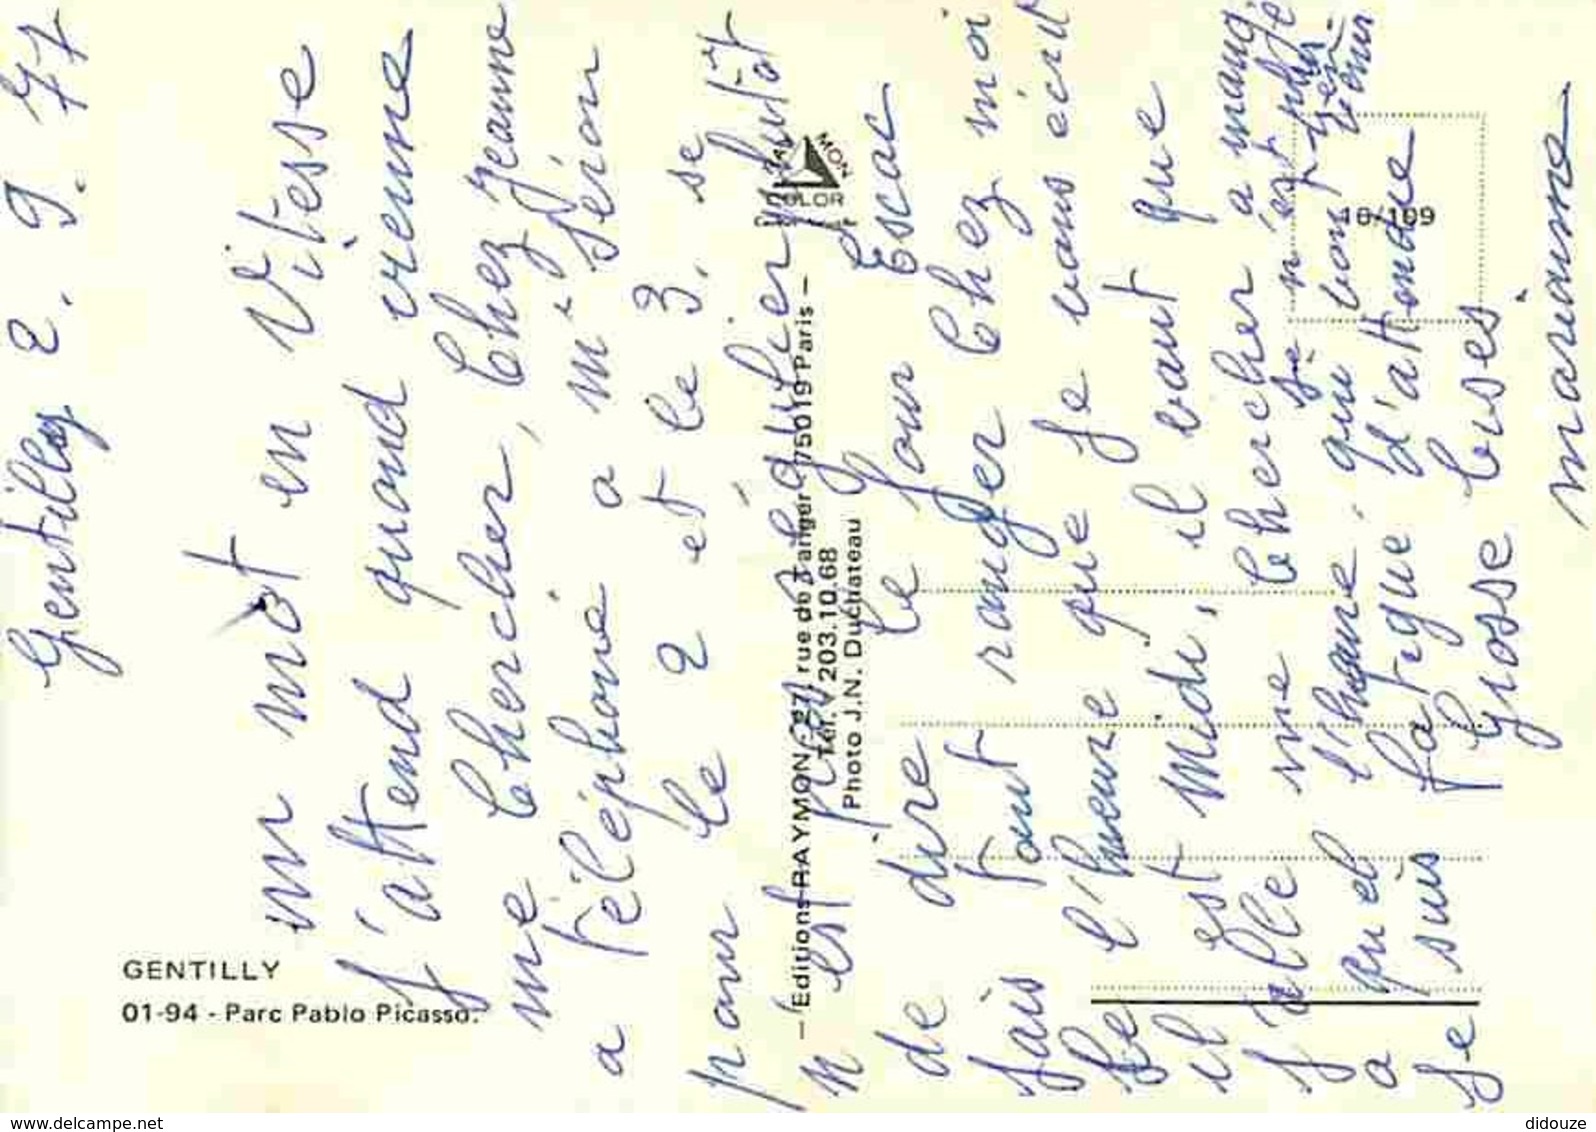 GENTILLY
01-94 - Parc Pablo Picasso.
— Editions RAYMON - 27, rue de Tanger - 75019 Paris —
Tél. : 203.10.68
Photo J.N. Duchateau
RAYMON
COLOR
10/109
Gentilly 2. 9. 77
un mot en Vitesse
J'attend quand vienne
me Chercher, Chez Jeanne
a téléphoné a m. Sérion
pour le 2 et le 3. se
n'est pas le quartier plutôt
de dire le jour Exac
fais tout ranger Chez moi
l'heure que Je vous écrit
il est Midi, il vaut que
J'alle me Chercher a mangé
Je n'est plus
a quel l'heure. qui vont
venir
Je suis fatigué d'attendre
Grosse bises
marianne
www.delcampe.net
didouze